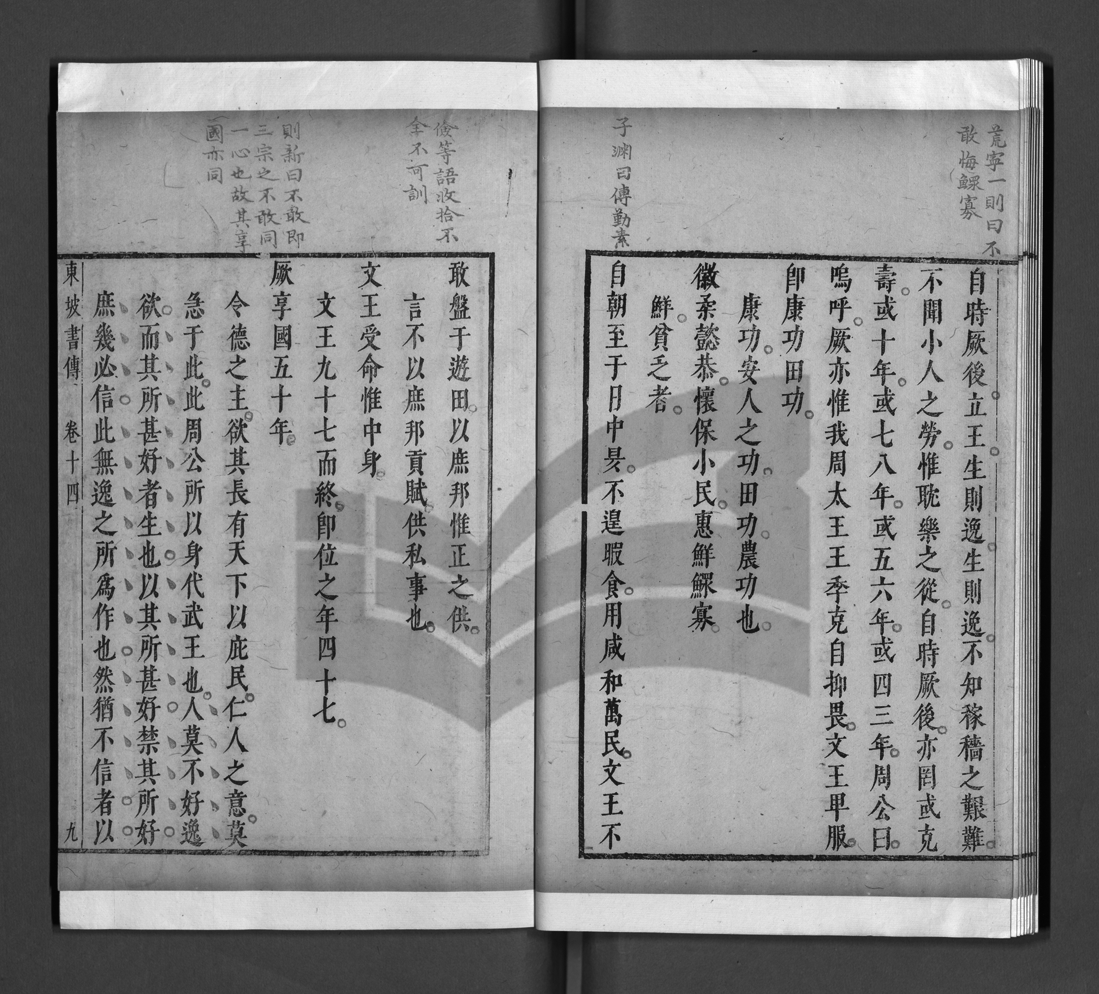 荒寧一則曰不
敢悔鰥寡
自時厥後立王生則逸生則逸不知稼穡之艱難
不聞小人之勞惟耽樂之從自時厥後亦罔或克
壽或十年或七八年或五六年或四三年周公曰
嗚呼厥亦惟我周太王王季克自抑畏文王卑服
卽康功田功
康功安人之功田功農功也
徽柔懿恭懷保小民惠鮮鰥寡
鮮貧乏者
子淵曰傳勤素
自朝至于日中昃不遑暇食用咸和萬民文王不
儉等語收拾不
全不可訓
敢盤于遊田以庶邦惟正之供
言不以庶邦貢賦供私事也
文王受命惟中身
文王九十七而終卽位之年四十七
則新曰不敢即
三宗之不敢同
一心也故其享
國亦同
厥享國五十年
令德之主欲其長有天下以庇民仁人之意莫
急于此此周公所以身代武王也人莫不好逸
欲而其所甚好者生也以其所甚好禁其所好
庶幾必信此無逸之所爲作也然猶不信者以
東坡書傳 卷十四 九